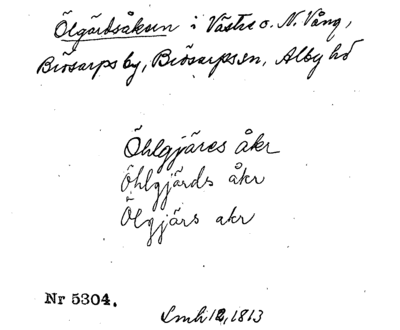 Ölgärdsåkern i Västre o. N. Vång,
Brösarps by, Brösarps sn, Albo hd
Öhlgjäres åkr
Öhlgjärds åkr
Ölgjärs akr
Nr 5304.
Lmh 12, 1813